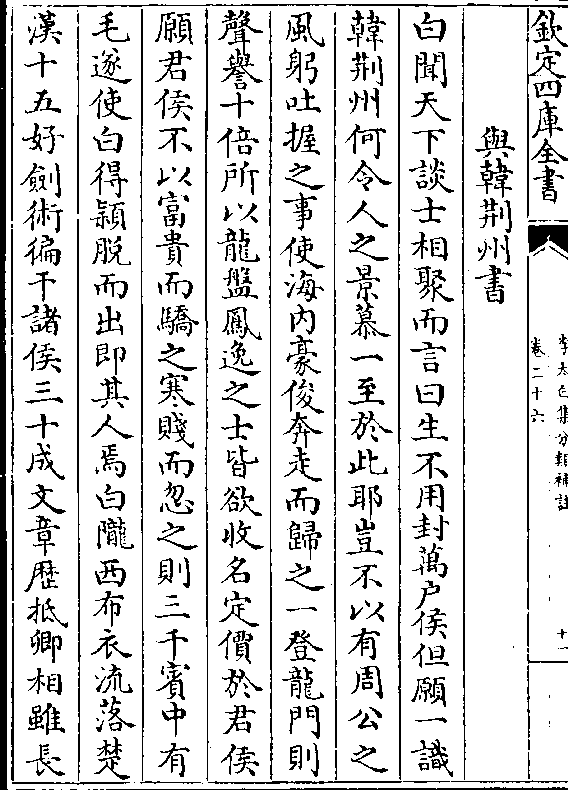 欽定四庫全書
李太白集分類補註
卷二十六
十一
與韓荆州書
白聞天下談士相聚而言曰生不用封萬户侯但願一識
韓荆州何令人之景慕一至於此耶豈不以有周公之
風躬吐握之事使海内豪俊奔走而歸之一登龍門則
聲譽十倍所以龍盤鳳逸之士皆欲收名定價於君侯
願君侯不以富貴而驕之寒賤而忽之則三千賓中有
毛遂使白得穎脱而出即其人焉白隴西布衣流落楚
漢十五好劍術徧干諸侯三十成文章歴抵卿相雖長